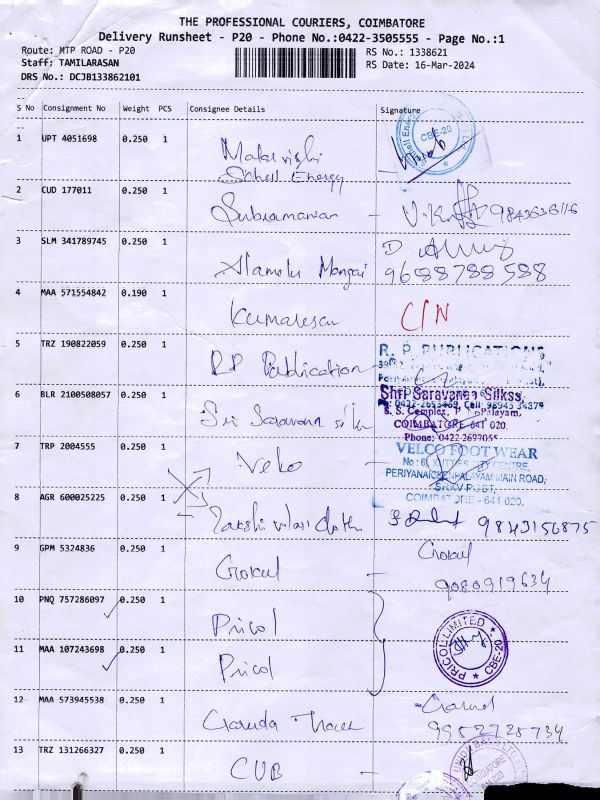 THE PROFESSIONAL COURIERS, COIMBATORE
Delivery Runsheet - P20 - Phone No.:0422-3505555 - Page No.:1
Route: MTP ROAD - P20
RS No.: 1338621
Staff: TAMILARASAN
RS Date: 16-Mar-2024
DRS No.: DCJB133862101
S No Consignment No Weight PCS Consignee Details Signature
1 UPT 4051698 0.250 1
CBE-20
Energy
2 CUD 177011 0.250 1 Subramanian -
3 SLM 341789745 0.250 1 Alamelu Mangai
9688788588
4 MAA 571554842 0.190 1 Kumaresan C/N
5 TRZ 190822059 0.250 1 RP Publication
R. P. PUBLICATIONS
6 BLR 2100508057 0.250 1 Sri Saravana
Shri Saravanaa Silkss,
S. S. Complex,
COIMBATORE 641 020.
Phone: 0422-2697055
7 TRP 2004555 0.250 1 Velco -
VELCO FOOT WEAR
PERIYANAICKENPALAYAM MAIN ROAD,
SRKV POST,
COIMBATORE - 641 020.
8 AGR 600025225 0.250 1 9843156875
9 GPM 5324836 0.250 1 Gokul - Gokul
9080919634
10 PNQ 757286097 0.250 1 Pricol
PRICOL LIMITED
CBE-20
11 MAA 107243698 0.250 1 Pricol
12 MAA 573945538 0.250 1 Garuda -
13 TRZ 131266327 0.250 1 CUB -
COIMBATORE